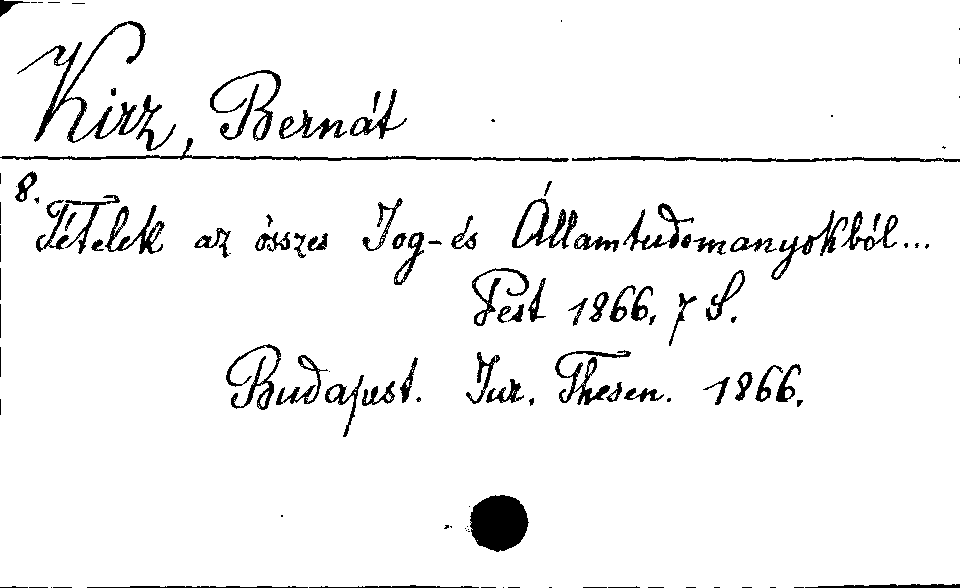 Kirz, Bernát
8.
Tételek az összes Jog- és Államtudomanyokból...
Pest 1866. 7 S.
Budapest. Jur. Thesen. 1866.